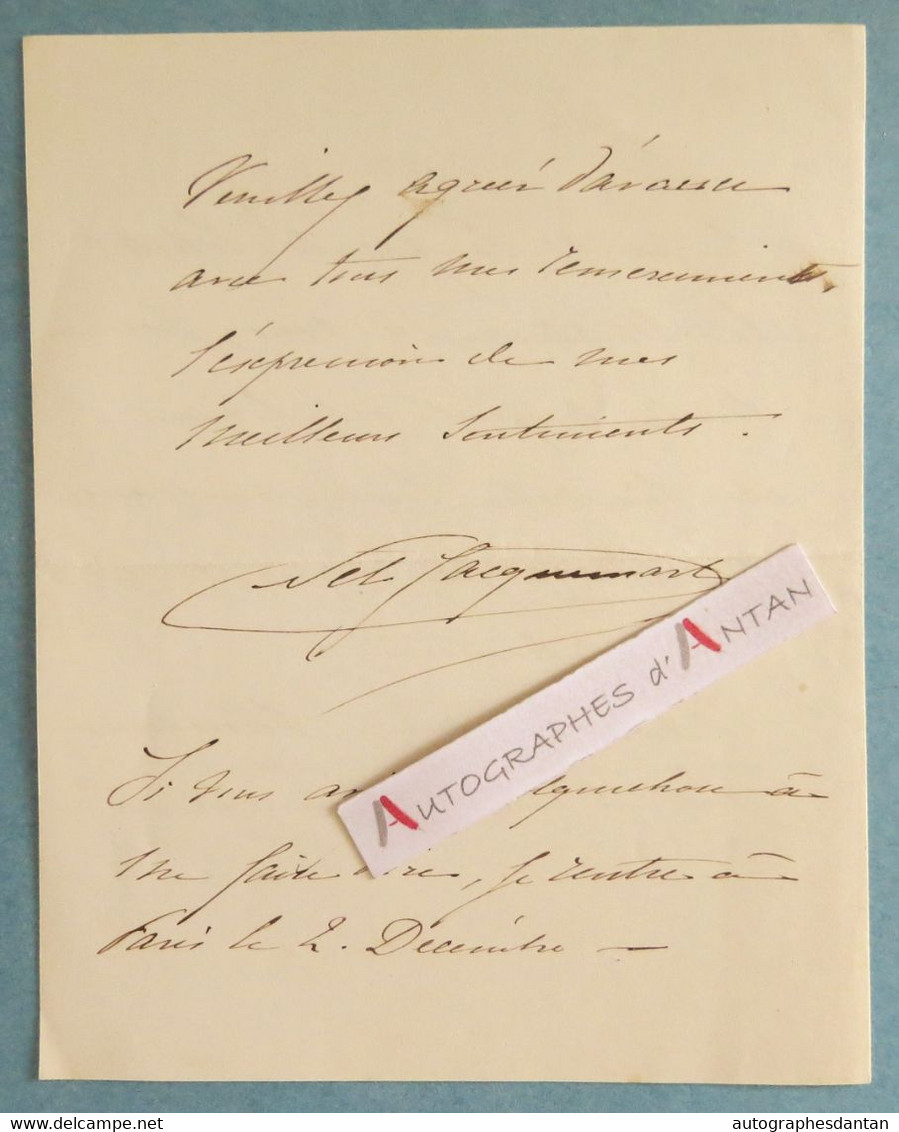 Veuillez agréer d'avance
avec tous mes remerciements,
l'expression de mes
meilleurs sentiments.
Nel Jacquemart
AUTOGRAPHES d'ANTAN
Si vous quelque chose à
me faire dire, je rentre à
Paris le 2. Décembre —
delcampe.net
autographesdantan